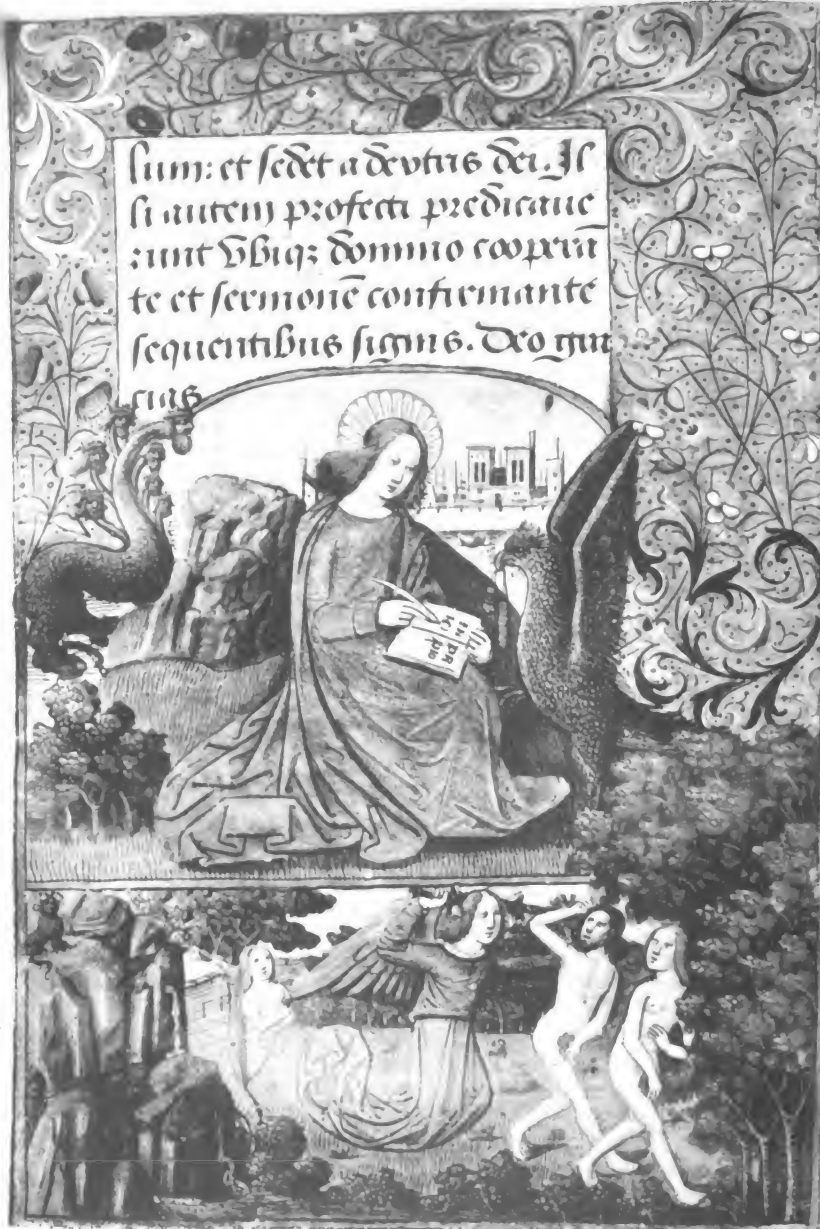 lum: et sedet a dextris dei. Il
li autem profecti predicaue
runt Vbiqz domino cooperā
te et sermonē confirmante
sequentibus signis. Deo gra
cias
IN
PRI